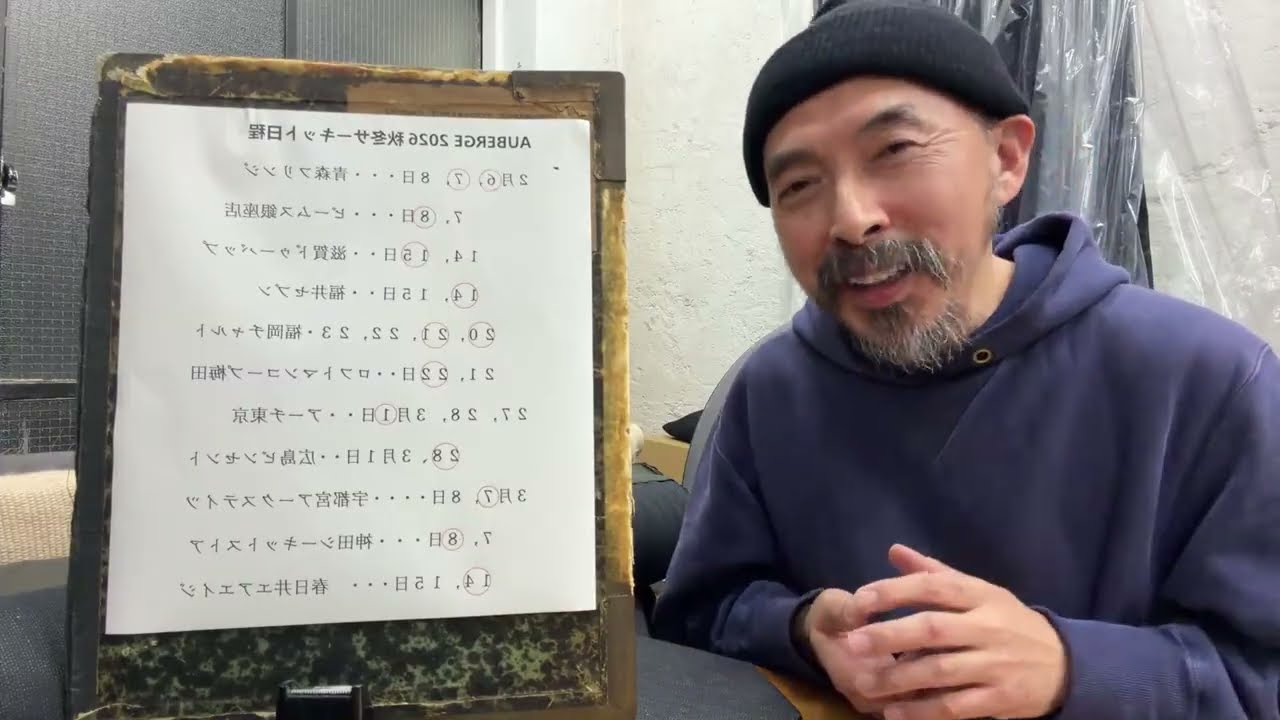 AUBERGE 2026 秋冬サーキット日程
2月6, 7, 8日・・・青森フリンジ
7, 8日・・・ビームス銀座店
14, 15日・・滋賀ドゥーバップ
14, 15日・・福井セブン
20, 21, 22, 23・福岡チャルト
21, 22日・・ロフトマンコープ梅田
27, 28, 3月1日・・アーチ東京
28, 3月1日・・広島ビンセント
3月7, 8日・・・・宇都宮アークステイツ
7, 8日・・・神田シーキットストア
14, 15日・・・ 春日井エアエイジ